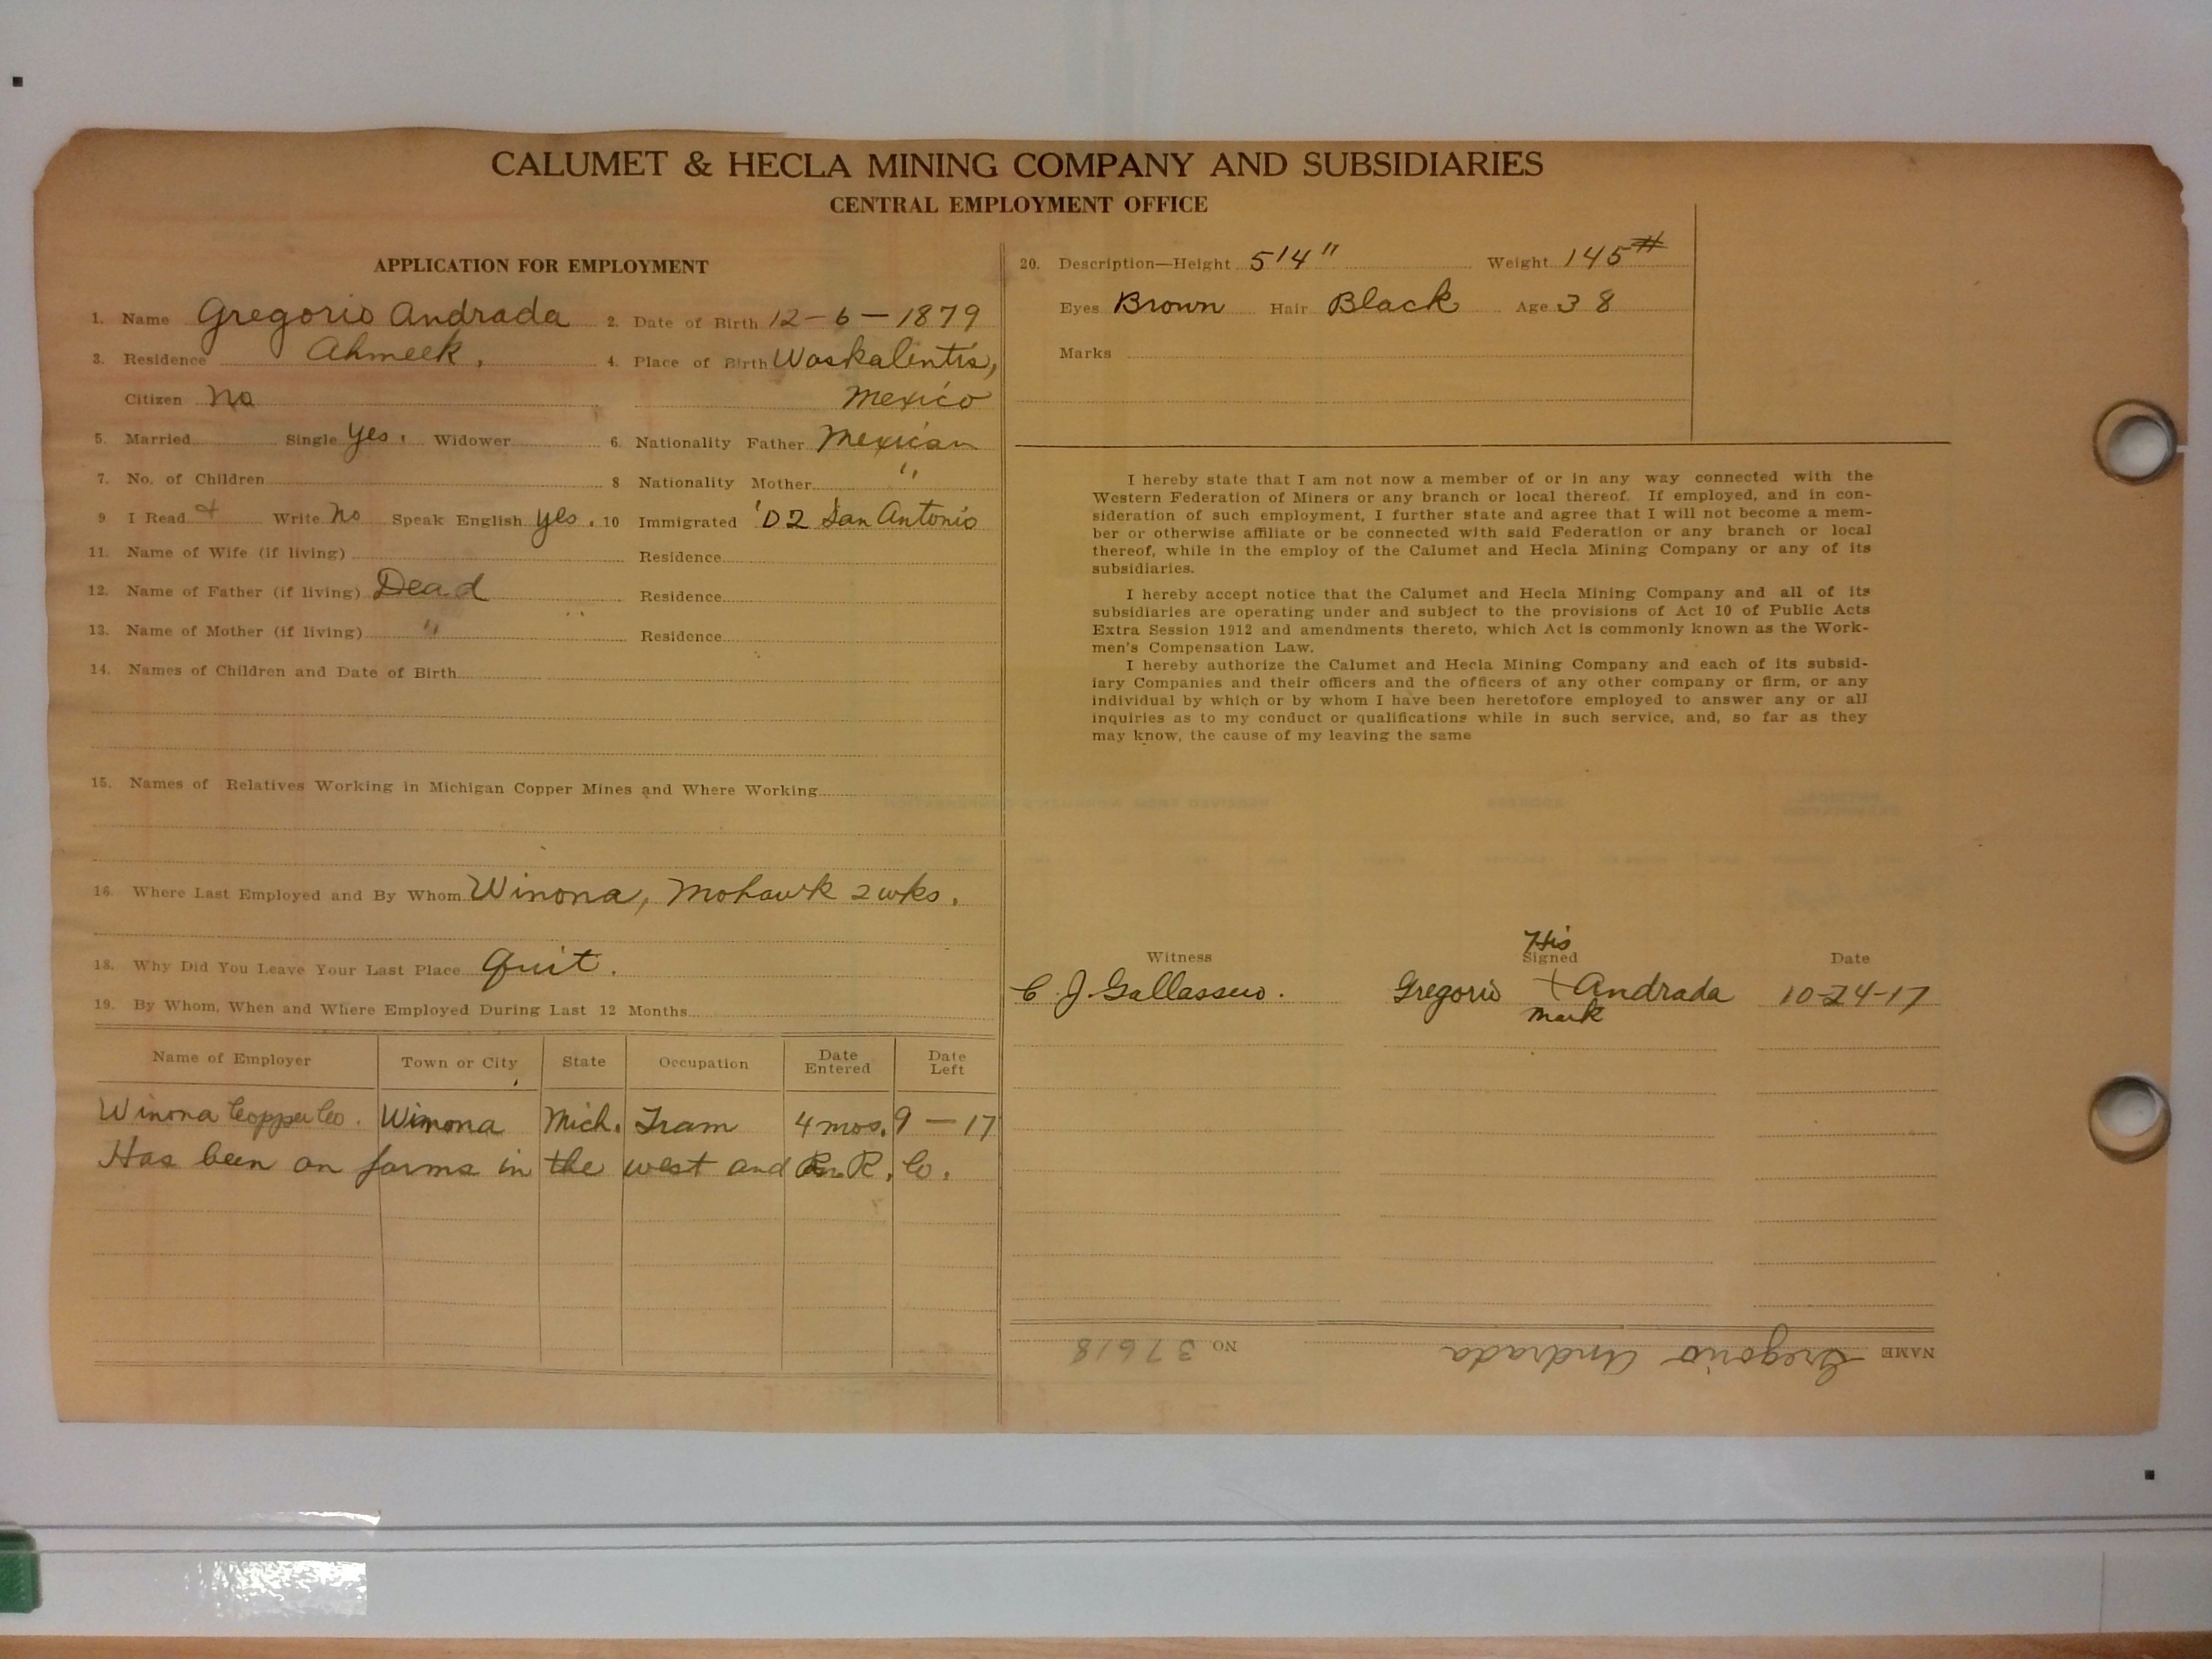 CALUMET & HECLA MINING COMPANY AND SUBSIDIARIES
CENTRAL EMPLOYMENT OFFICE
APPLICATION FOR EMPLOYMENT
1. Name Gregorio Andrada 2. Date of Birth 12-6-1879
3. Residence Ahmeek, 4. Place of Birth Waskalentis,
Citizen no Mexico
5. Married Single yes. Widower 6. Nationality Father Mexican
7. No. of Children 8 Nationality Mother "
9 I Read + Write no Speak English yes. 10 Immigrated '02 San Antonio
11. Name of Wife (if living) Residence
12. Name of Father (if living) Dead Residence
13. Name of Mother (if living) " Residence
14. Names of Children and Date of Birth
15. Names of Relatives Working in Michigan Copper Mines and Where Working
16. Where Last Employed and By Whom Winona, Mohawk 2 wks.
18. Why Did You Leave Your Last Place Quit.
19. By Whom, When and Where Employed During Last 12 Months
Name of Employer Town or City State Occupation Date Entered Date Left
Winona Copper Co. Winona Mich. Tram 4 mos. 9 - 17
Has been on farms in the west and R. Co.
20. Description—Height 5'4" Weight 145#
Eyes Brown Hair Black Age 38
Marks
I hereby state that I am not now a member of or in any way connected with the
Western Federation of Miners or any branch or local thereof. If employed, and in con-
sideration of such employment, I further state and agree that I will not become a mem-
ber or otherwise affiliate or be connected with said Federation or any branch or local
thereof, while in the employ of the Calumet and Hecla Mining Company or any of its
subsidiaries.
I hereby accept notice that the Calumet and Hecla Mining Company and all of its
subsidiaries are operating under and subject to the provisions of Act 10 of Public Acts
Extra Session 1912 and amendments thereto, which Act is commonly known as the Work-
men's Compensation Law.
I hereby authorize the Calumet and Hecla Mining Company and each of its subsid-
iary Companies and their officers and the officers of any other company or firm, or any
individual by which or by whom I have been heretofore employed to answer any or all
inquiries as to my conduct or qualifications while in such service, and, so far as they
may know, the cause of my leaving the same
His
Witness Signed Date
C. J. Gallassero. Gregorio + Andrada 10-24-17
mark
NAME Gregorio Andrada NO 37618